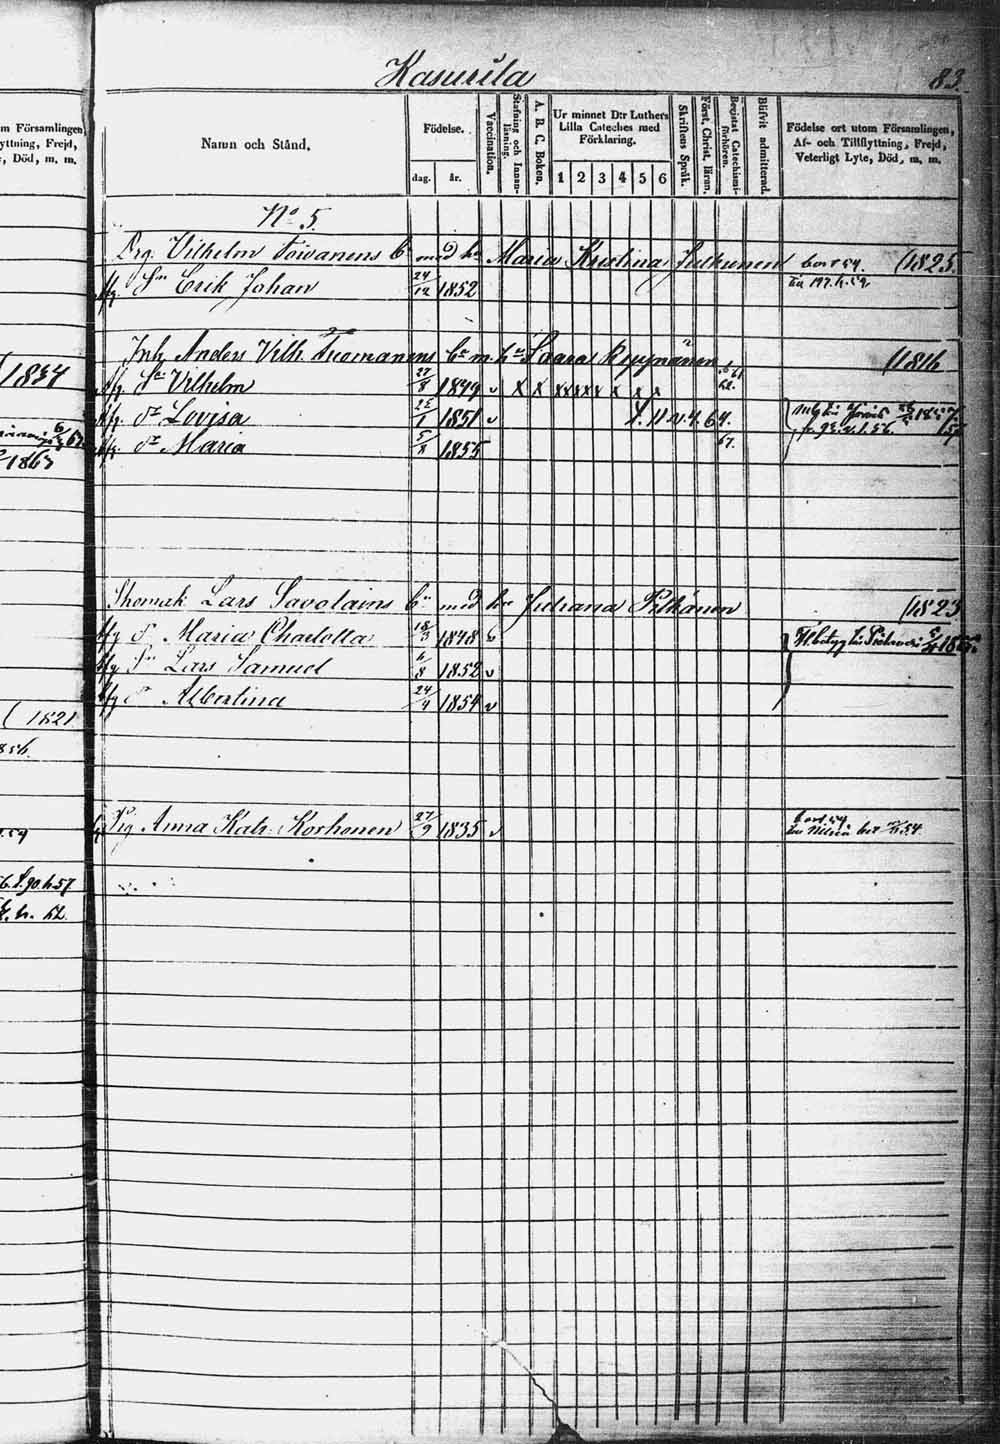 Kasurila
83.
m Församlingen,
yttning, Frejd,
, Död, m. m.
Namn och Stånd.
Födelse.
dag.
år.
Vaccination.
Stafning och Innan-
läsning.
A. B. C. Boken.
Ur minnet D:r Luthers
Lilla Cateches med
Förklaring.
1 2 3 4 5 6
Skriftens Språk.
Först. Christ. läran.
Begistat Catechismi-
förhören.
Blifvit admitterad.
Födelse ort utom Församlingen,
Af- och Tillflyttning, Frejd,
Veterligt Lyte, Död, m. m.
No 5.
Drg. Vilhelm Toivanens bn med hu Maria Kristina Julkunen bort 59. (1825.
Sn Erik Johan 24/12 1852
Inh. Anders Vilh. Tuomanens bn m. hu Saara Ryynänen (1816
Sn Vilhelm 27/8 1849 v x x xx xx x x x x
dr Lovisa 25/7 1851 v 64.
dr Maria 5/8 1855 67.
1834
1863
Skomak. Lars Savolains bn med hu Juliana Pitkänen (1823
dr Maria Charlotta 18/3 1848 v
Sn Lars Samuel 6/8 1852 v
dr Albertina 24/4 1854 v
(1821
856.
Pig Anna Kat. Korhonen 27/9 1835 v bort 59
.59
h. 62.